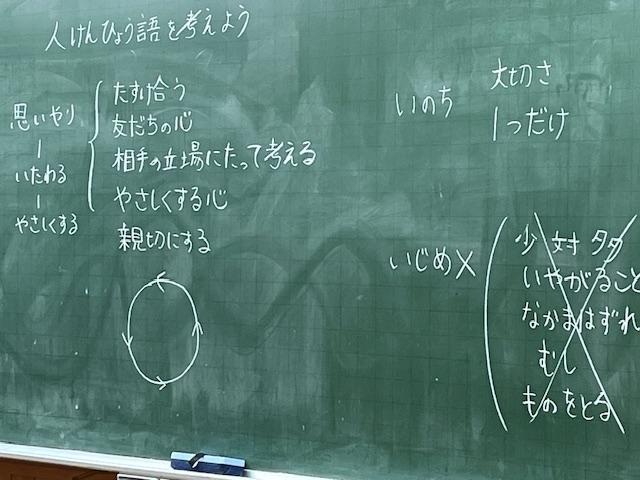 人けんひょう語を考えよう
思いやり
いたわる
やさしくする
たすけ合う
友だちの心
相手の立場にたって考える
やさしくする心
親切にする
いのち
大切さ
1つだけ
いじめ×
少 対 多
いやがること
なかまはずれ
むし
ものをとる